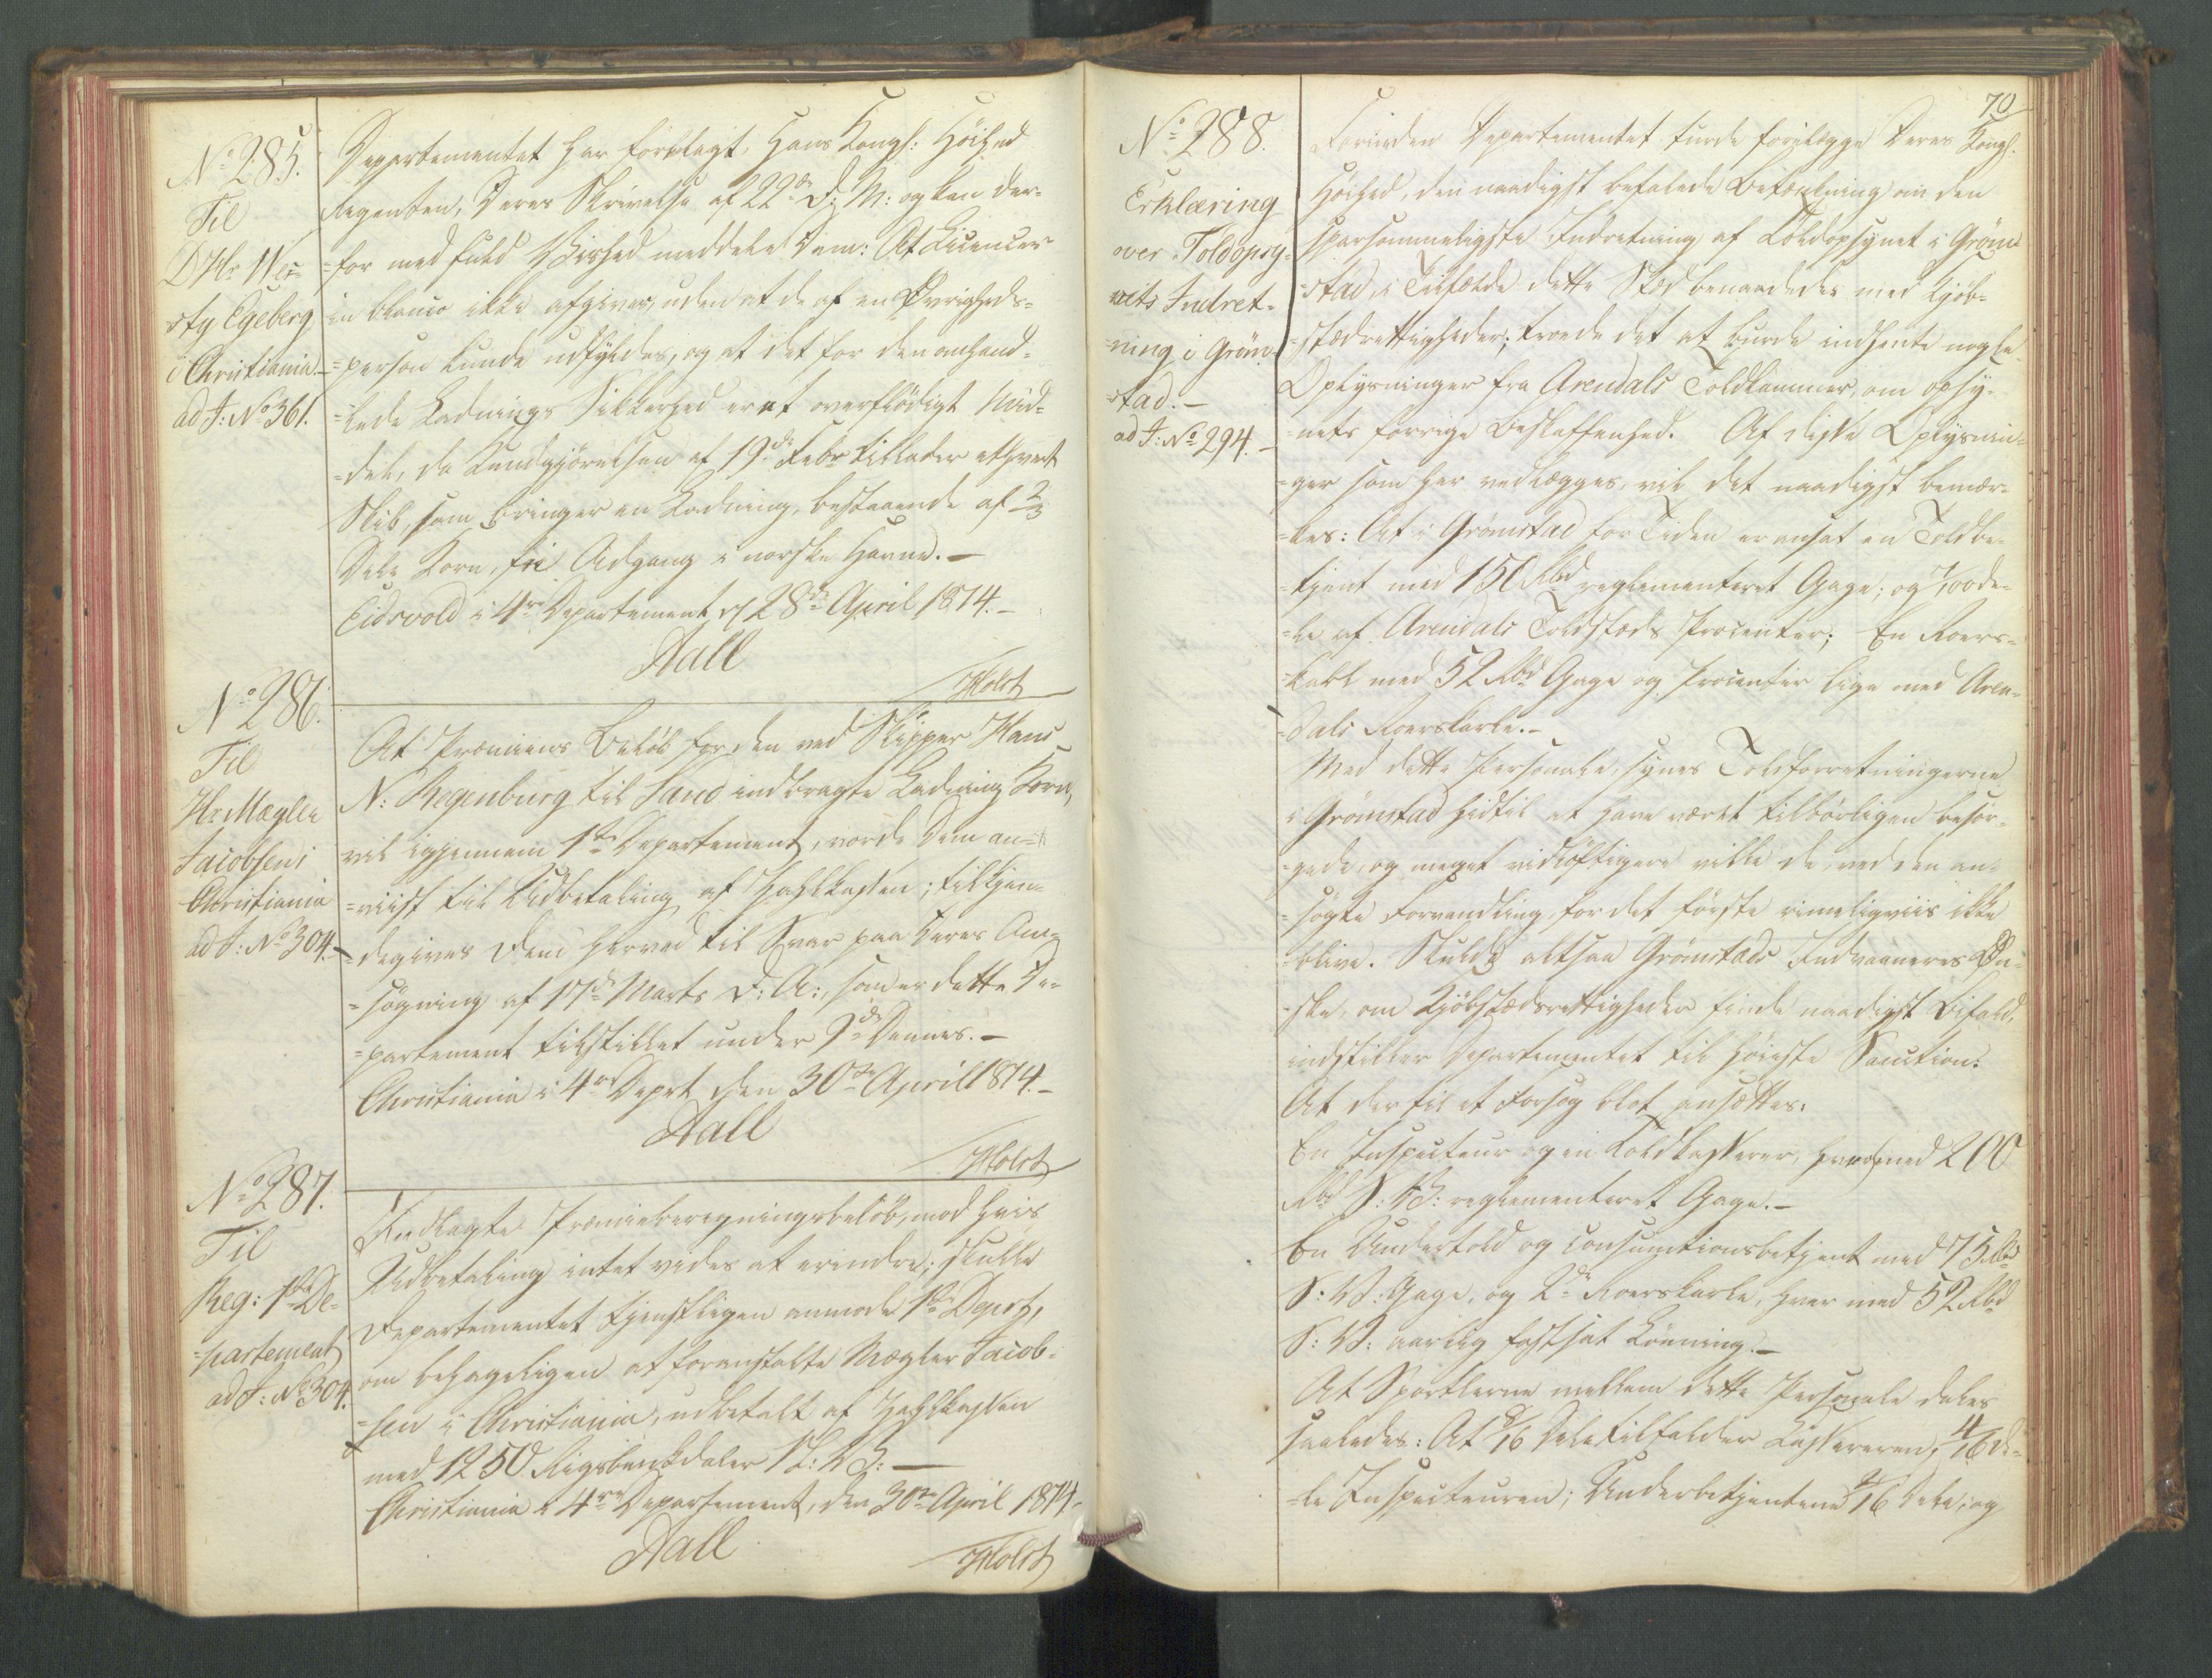 No 285.
Til
DHr Wer-
sty Egeberg
i Christiania.-
ad J: No 361.
Departementet har forelagt, Hans Kongl: Höihed
Regenten, Deres Skrivelse af 22de d: M: og kan der-
=for med fuld Vished meddele Dem: At Licencer
in blanco ikke afgives, uden at de af en Øvrigheds-
=person kunde udfyldes, og at det for den omhand-
=lede Ladnings Sikkerhed er et overflödigt Mid-
=del, da Kundgjörelsen af 19de Febr tillader ethvert
Skib, som bringer en Ladning, bestaaende af 2/3
Dele Korn, fri Adgang i norske Havne.-
Eidsvold i 4de Departement d 28de April 1814.-
Aall
Holst
No 286.
Til
Hr Mægler
Jacobsen i
Christiania
ad J: No 304.-
At Præmiens Belöb for den ved Skipper Hans
N: Regenburg til Sand indbragte Ladning Korn,
vil igjennem 1ste Departement, vorde Dem an-
=viist til Udbetaling af Zahlkassen; tilkjen-
=degives Dem herved til Svar paa Deres An-
=søgning af 17de Marts d: A:, som er dette De-
=partement tilstillet under 9de Dennes.-
Christiania i 4de Depart den 30te April 1814.-
Aall
Holst
No 287.
Til
Reg: 1ste De-
=partement
ad J: No 304.
Indlagte Præmieberegningsbelöb, mod hvis
Udbetaling intet vides at erindre, skulle
Departementet tjenstligen anmode 1ste Depart,
om behageligen at foranstalte Mægler Jacob-
=sen i Christiania, udbetalt af Zahlkassen
med 1250 Rigsbankdaler N: V:-
Christiania i 4de Departement, den 30te April 1814-
Aall
Holst
70
No 288.
Erklæring
over Toldopsy-
nets Indret-
=ning i Gröm-
stad.-
ad J: No 294.-
Forinden Departementet turde forelægge Deres Kongl.
Höihed, den naadigst befalede Betænkning om den
sparsommeligste Indretning af Toldopsynet i Gröm-
=stad, i Tilfælde dette Sted benaadedes med Kjöb-
=stædrettigheder; troede det at burde indhente nogle
Oplysninger fra Arendals Toldkammer, om opsy-
=nets forrige Beskaffenhed. Af disse Oplysnin-
=ger som her vedlægges, vil det naadigst bemær-
=kes: At i Grömstad for Tiden er ansat en Toldbe-
=tjent med 150 Rbd reglementeret Gage, og 7/100 de-
=le af Arendals Toldsteds Procenter; En Roers-
=karl med 52 Rbd Gage og Procenter lige med Aren-
=dals Roerskarle.-
Med dette Personale, synes Toldforretningerne
i Grömstad hidtil at have været tilbörligen besör-
=gede, og meget vidlöftigere ville de, ved den an-
=søgte Forvandling for det förste rimeligviis ikke
blive. Skulde altsaa Grömstads Indvaaneres Øn-
=ske, om Kjöbstædrettigheder finde naadigst Bifald,
indstiller Departementet til höieste Sanction:
At der til et Forsøg blot ansættes:
En Inspecteur og en Toldkasserer, hver med 200
Rbd S: V: reglementeret Gage.-
En Undertold og Consumtionsbetjent med 75 Rbd
S: V: Gage, og 2de Roerskarle, hver med 52 Rbd
S: V: aarlig fastsat Lönning.-
At Sportlerne mellem dette Personale deles
saaledes: At 8/16 Dele tilfalder Kassereren, 4/16 De-
=le Inspecteuren; Underbetjentene 2/16 Dele, og